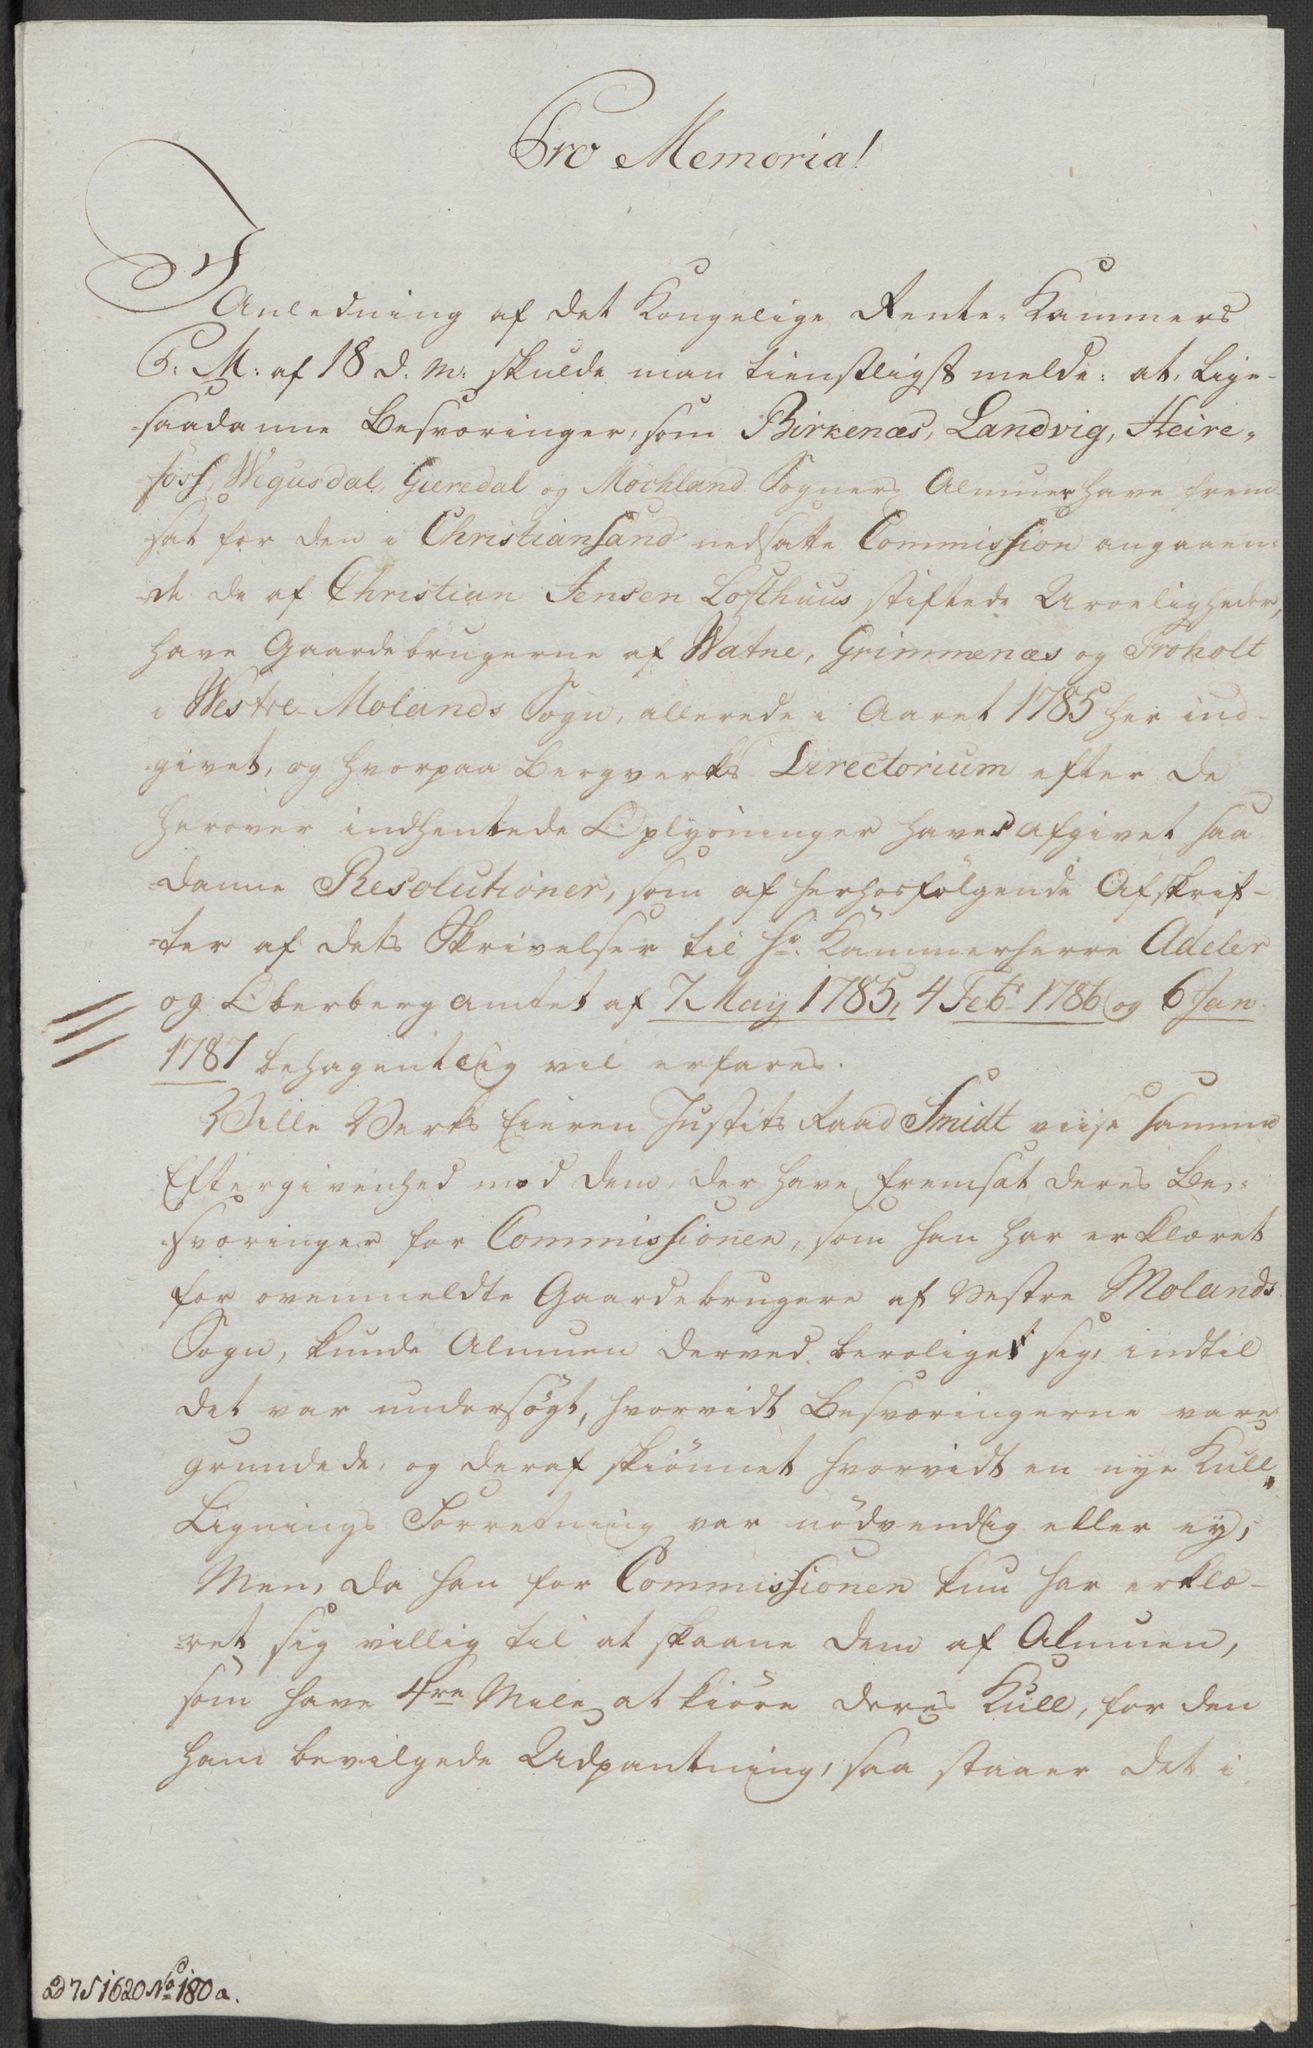 Pro Memoria!
I Anledning af det Kongelige Rente-Kammers
P: M: af 18 d. M: skulde man tienstligst melde: at, lige-
saadanne Besværinger, som Birkenæs, Landvig, Heire-
foss, Wegusdal, Gieredal og Möckland Sogners Almue have frem-
sat for den i Christiansand nedsatte Commission angaaen-
de de af Christian Jensen Lofthuus stiftede Uroeligheder,
have Gaardebrugerne af Watne, Grimmenæs og Troholt
i Westre-Molands Sogn, allerede i Aaret 1785 her ind-
givet, og hvorpaa Bergverks Directorium efter de
herover indhentede Oplysninger haver afgivet saa
danne Resolutioner, som af herhosfölgende Afskrif-
ter af dets Skrivelser til Hr. Kammerherre Adeler
og Oberbergamtet af 7 May 1785, 4 Febr 1786 og 6 Jan.
1787 behagentlig vil erfares.
Ville Verks Eieren Justits Raad Smidt viise samme
Eftergivenhed mod dem, der have fremsat deres Be-
sværinger for Commissionen, som han har erklæret
for ovenmeldte Gaardebrugere af Vestre Molands
Sogn, kunde Almuen derved beroliget sig, indtil
det var undersögt, hvorvidt Besværingerne vare
grundede, og deraf skiönnet hvorvidt en nye Kull-
Lignings Forretning var nödvendig eller ey;
Men, da han for Commissionen kun har erklæ-
ret sig villig til at skaane dem af Almuen,
som have 4re Mile at kiöre deres Kull, for den
ham bevilgede Udpantning, saa staaer det i
D 75 1620 No 180 a.